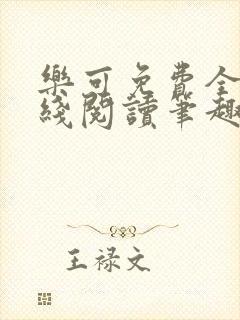 樂可免費全
綫閱讀筆趣
王禄文